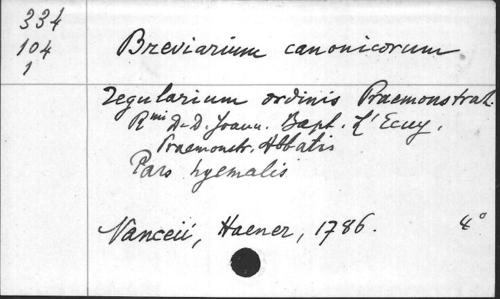 334
104
1
Breviarium canonicorum
regularium ordinis Praemonstrat.
Rmi D.D. Joann. Bapt. L'Ecuy,
Praemonstr. Abbatis
Pars hyemalis
Nanceii, Haener, 1786. 4°